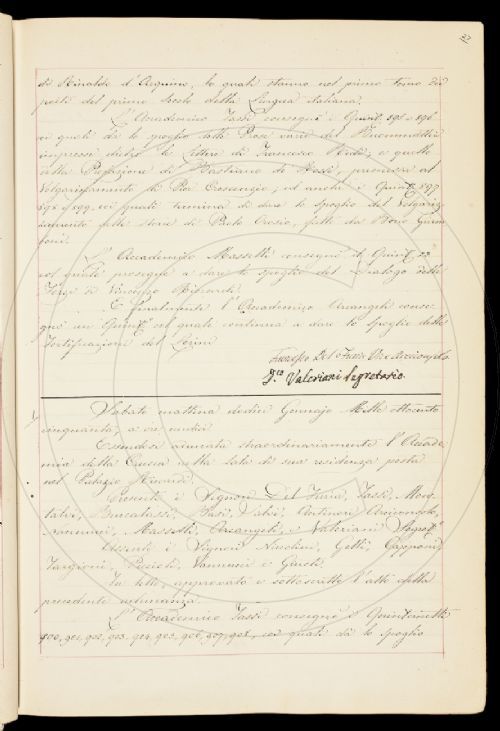 37
di Rinaldo d'Aquino, le quali stanno nel primo tomo dei
poeti del primo secolo della Lingua italiana.
L'Accademico Tassi consegnò i Quint. 595 e 596
coi quali dà lo spoglio delle Prose varie del Buommattei
impresse dietro le Lettere di Francesco Redi; e quello
della Prefazione di Bastiano de' Rossi, premessa al
Volgarizzamento di Pier Crescenzio; ed anche i Quint. 597,
598 e 599, coi quali termina di dare lo spoglio del Volgariz-
zamento delle storie di Paolo Orosio, fatto da Bono Giam-
boni.
L'Accademico Masselli consegnò il Quint.
col quale prosegue a dare lo spoglio del Dialogo delle
Forze di Vincenzo
E finalmente l'Accademico Arcangeli conse-
gnò un Quint. col quale continua a dare lo spoglio delle
Fortificazioni del Lorini
Francesco Del Furia Vice Arciconsolo
Valeriani Segretario.
Sabato mattina dodici Gennajo Mille ottocento
cinquanta, a ore undici
Essendosi adunata straordinariamente l'Accade-
mia della Crusca nella Sala di sua residenza posta
nel Palazzo Riccardi.
Presenti i Signori Del Furia, Tassi, Mon-
talvi, Brucalassi, Basi, Valsi, Cortinovi Arciconsolo,
Nannucci, Masselli, Arcangeli, e Valeriani Segret.
Assenti i Signori Niccolini, Gelli, Capponi,
Targioni, Puccioli, Vannucci e Giusti.
Fu letto, approvato e sottoscritto l'atto della
precedente adunanza.
L'Accademico Tassi consegnò i Quinternetti
900, 901, 902, 903, 904, 905, 906, 907, 908, coi quali dà lo spoglio